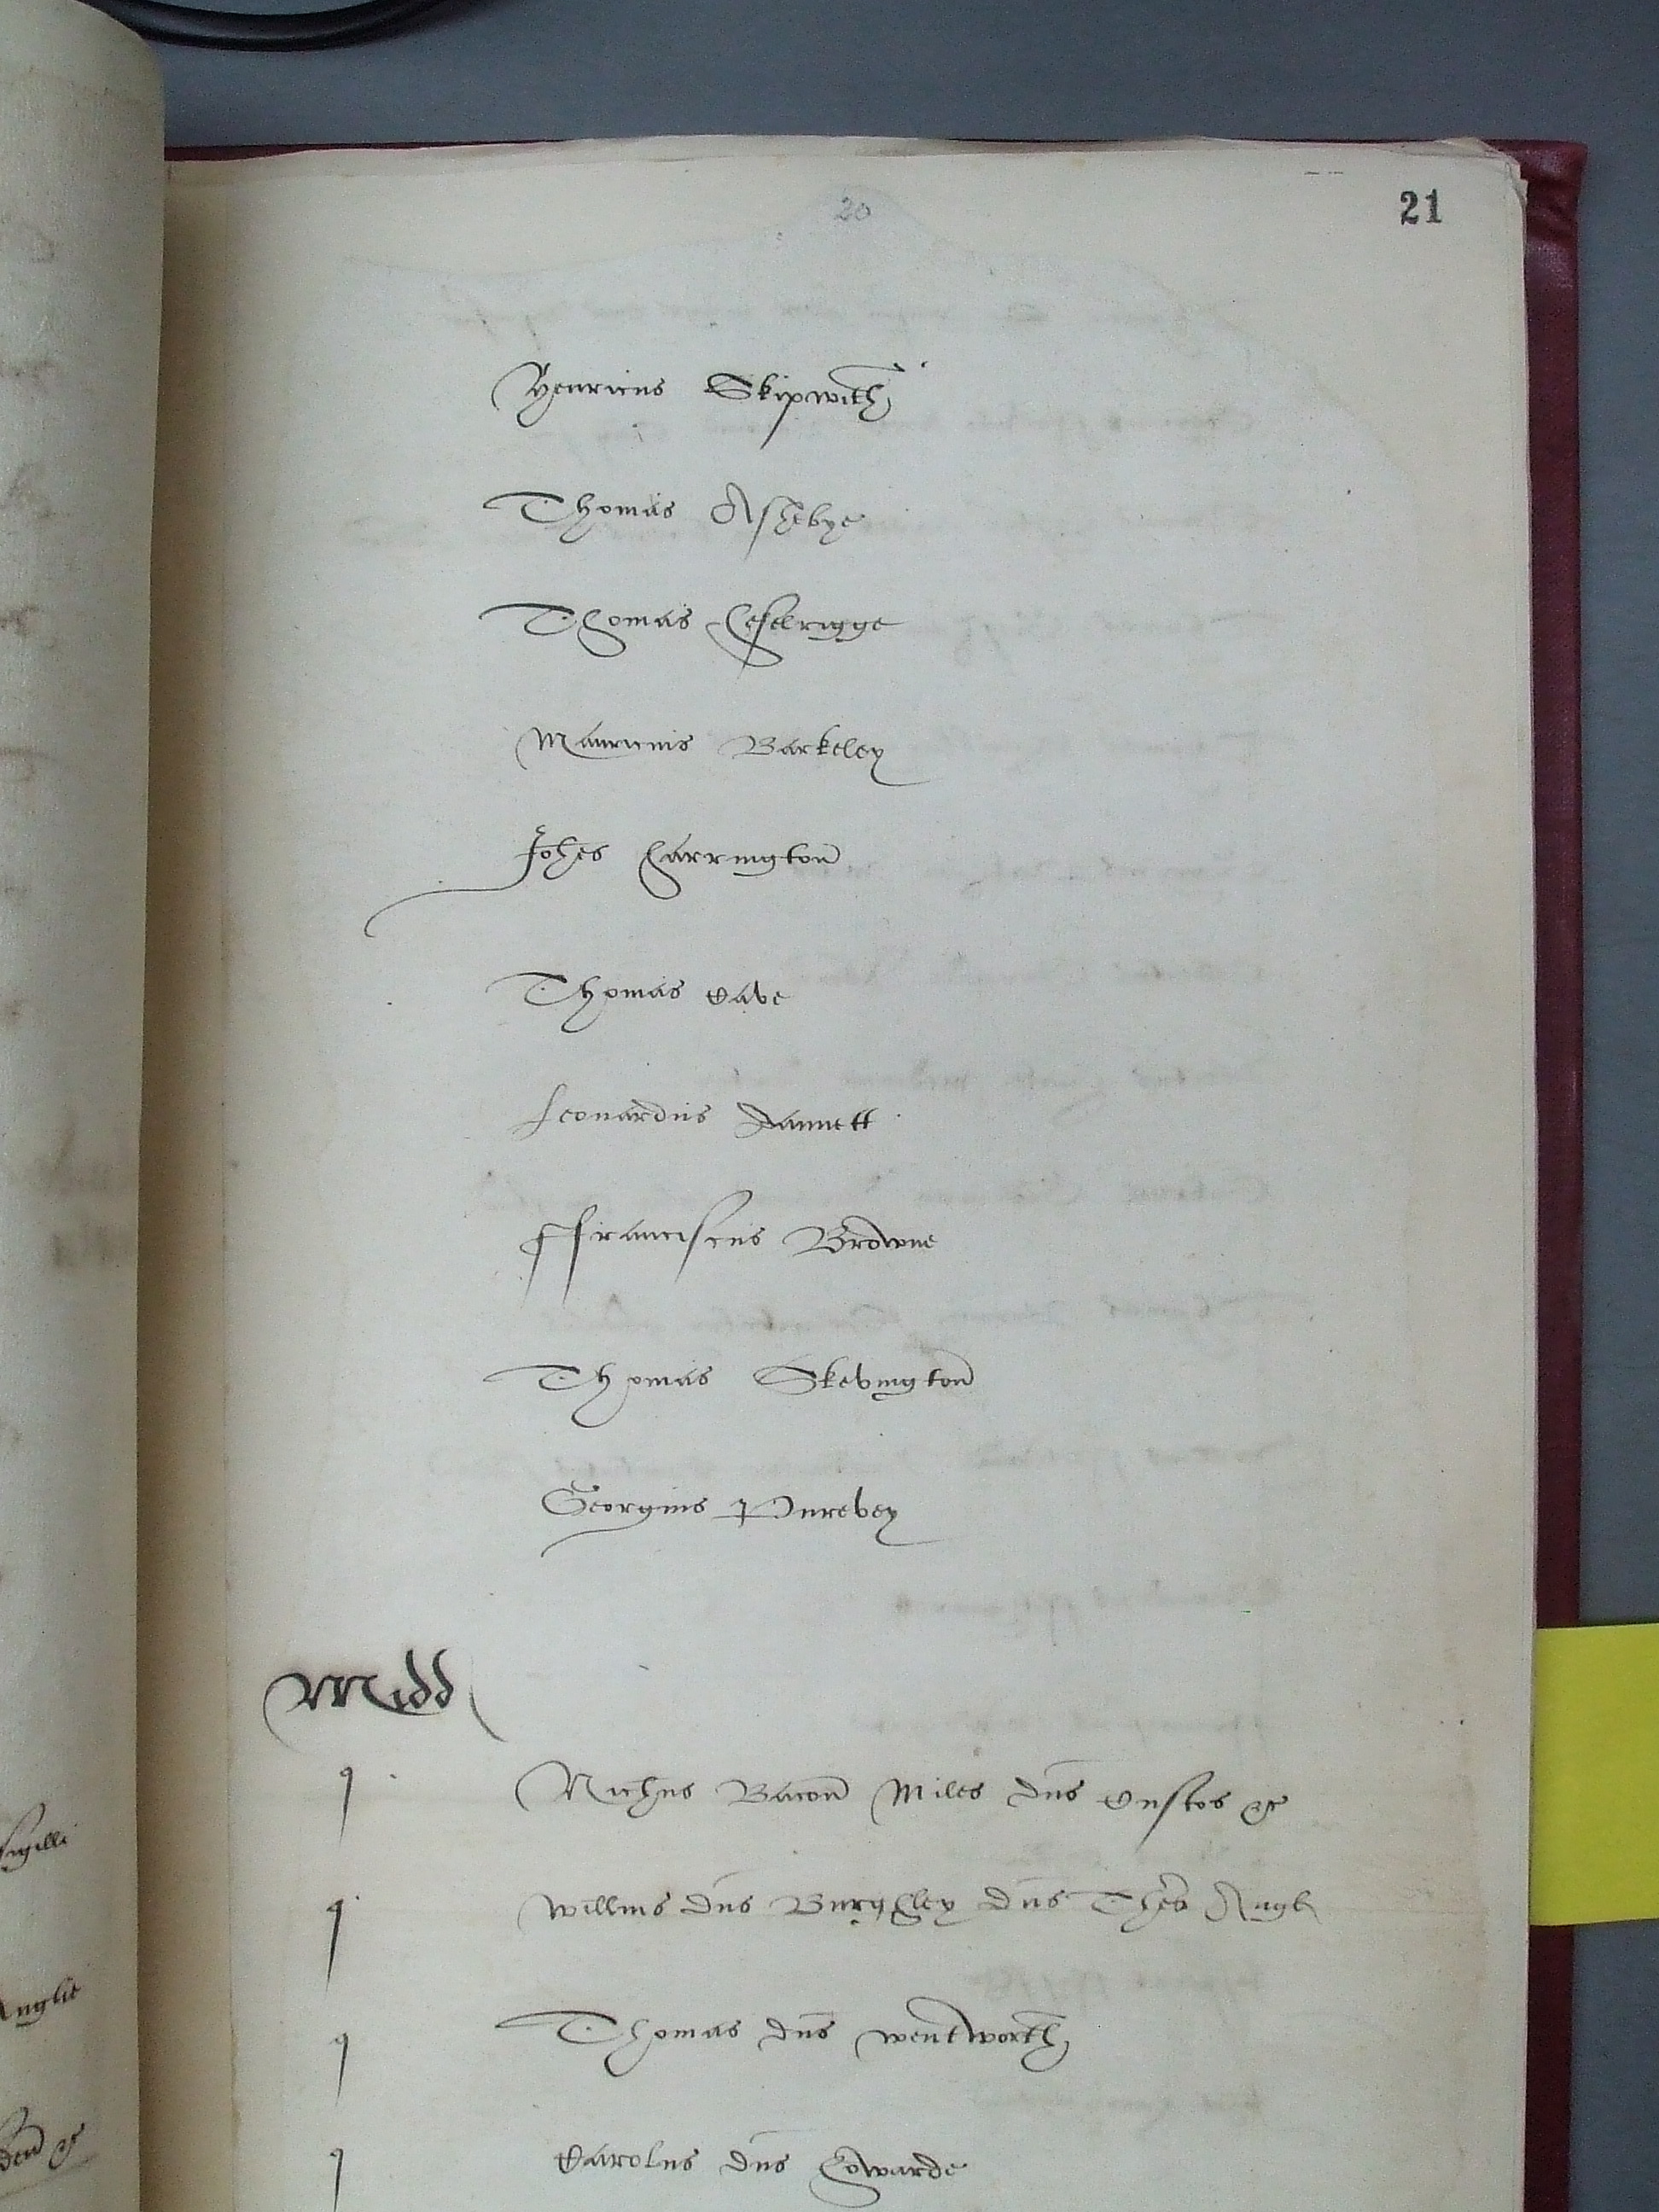 20
21
Henricus Skipwith
Thomas Ashebye
Thomas Heselrigge
Mauricius Barkeley
Johes Harrington
Thomas Cave
Leonardus Dannett
ffranciscus Browne
Thomas Skevington
Georgius Purevey
Midd
q
Nichus Bacon Miles dns Custos &c
q
Willms dns Burghley dns Thes Angl
q
Thomas dns Wentworth
q
Carolus dns Howarde